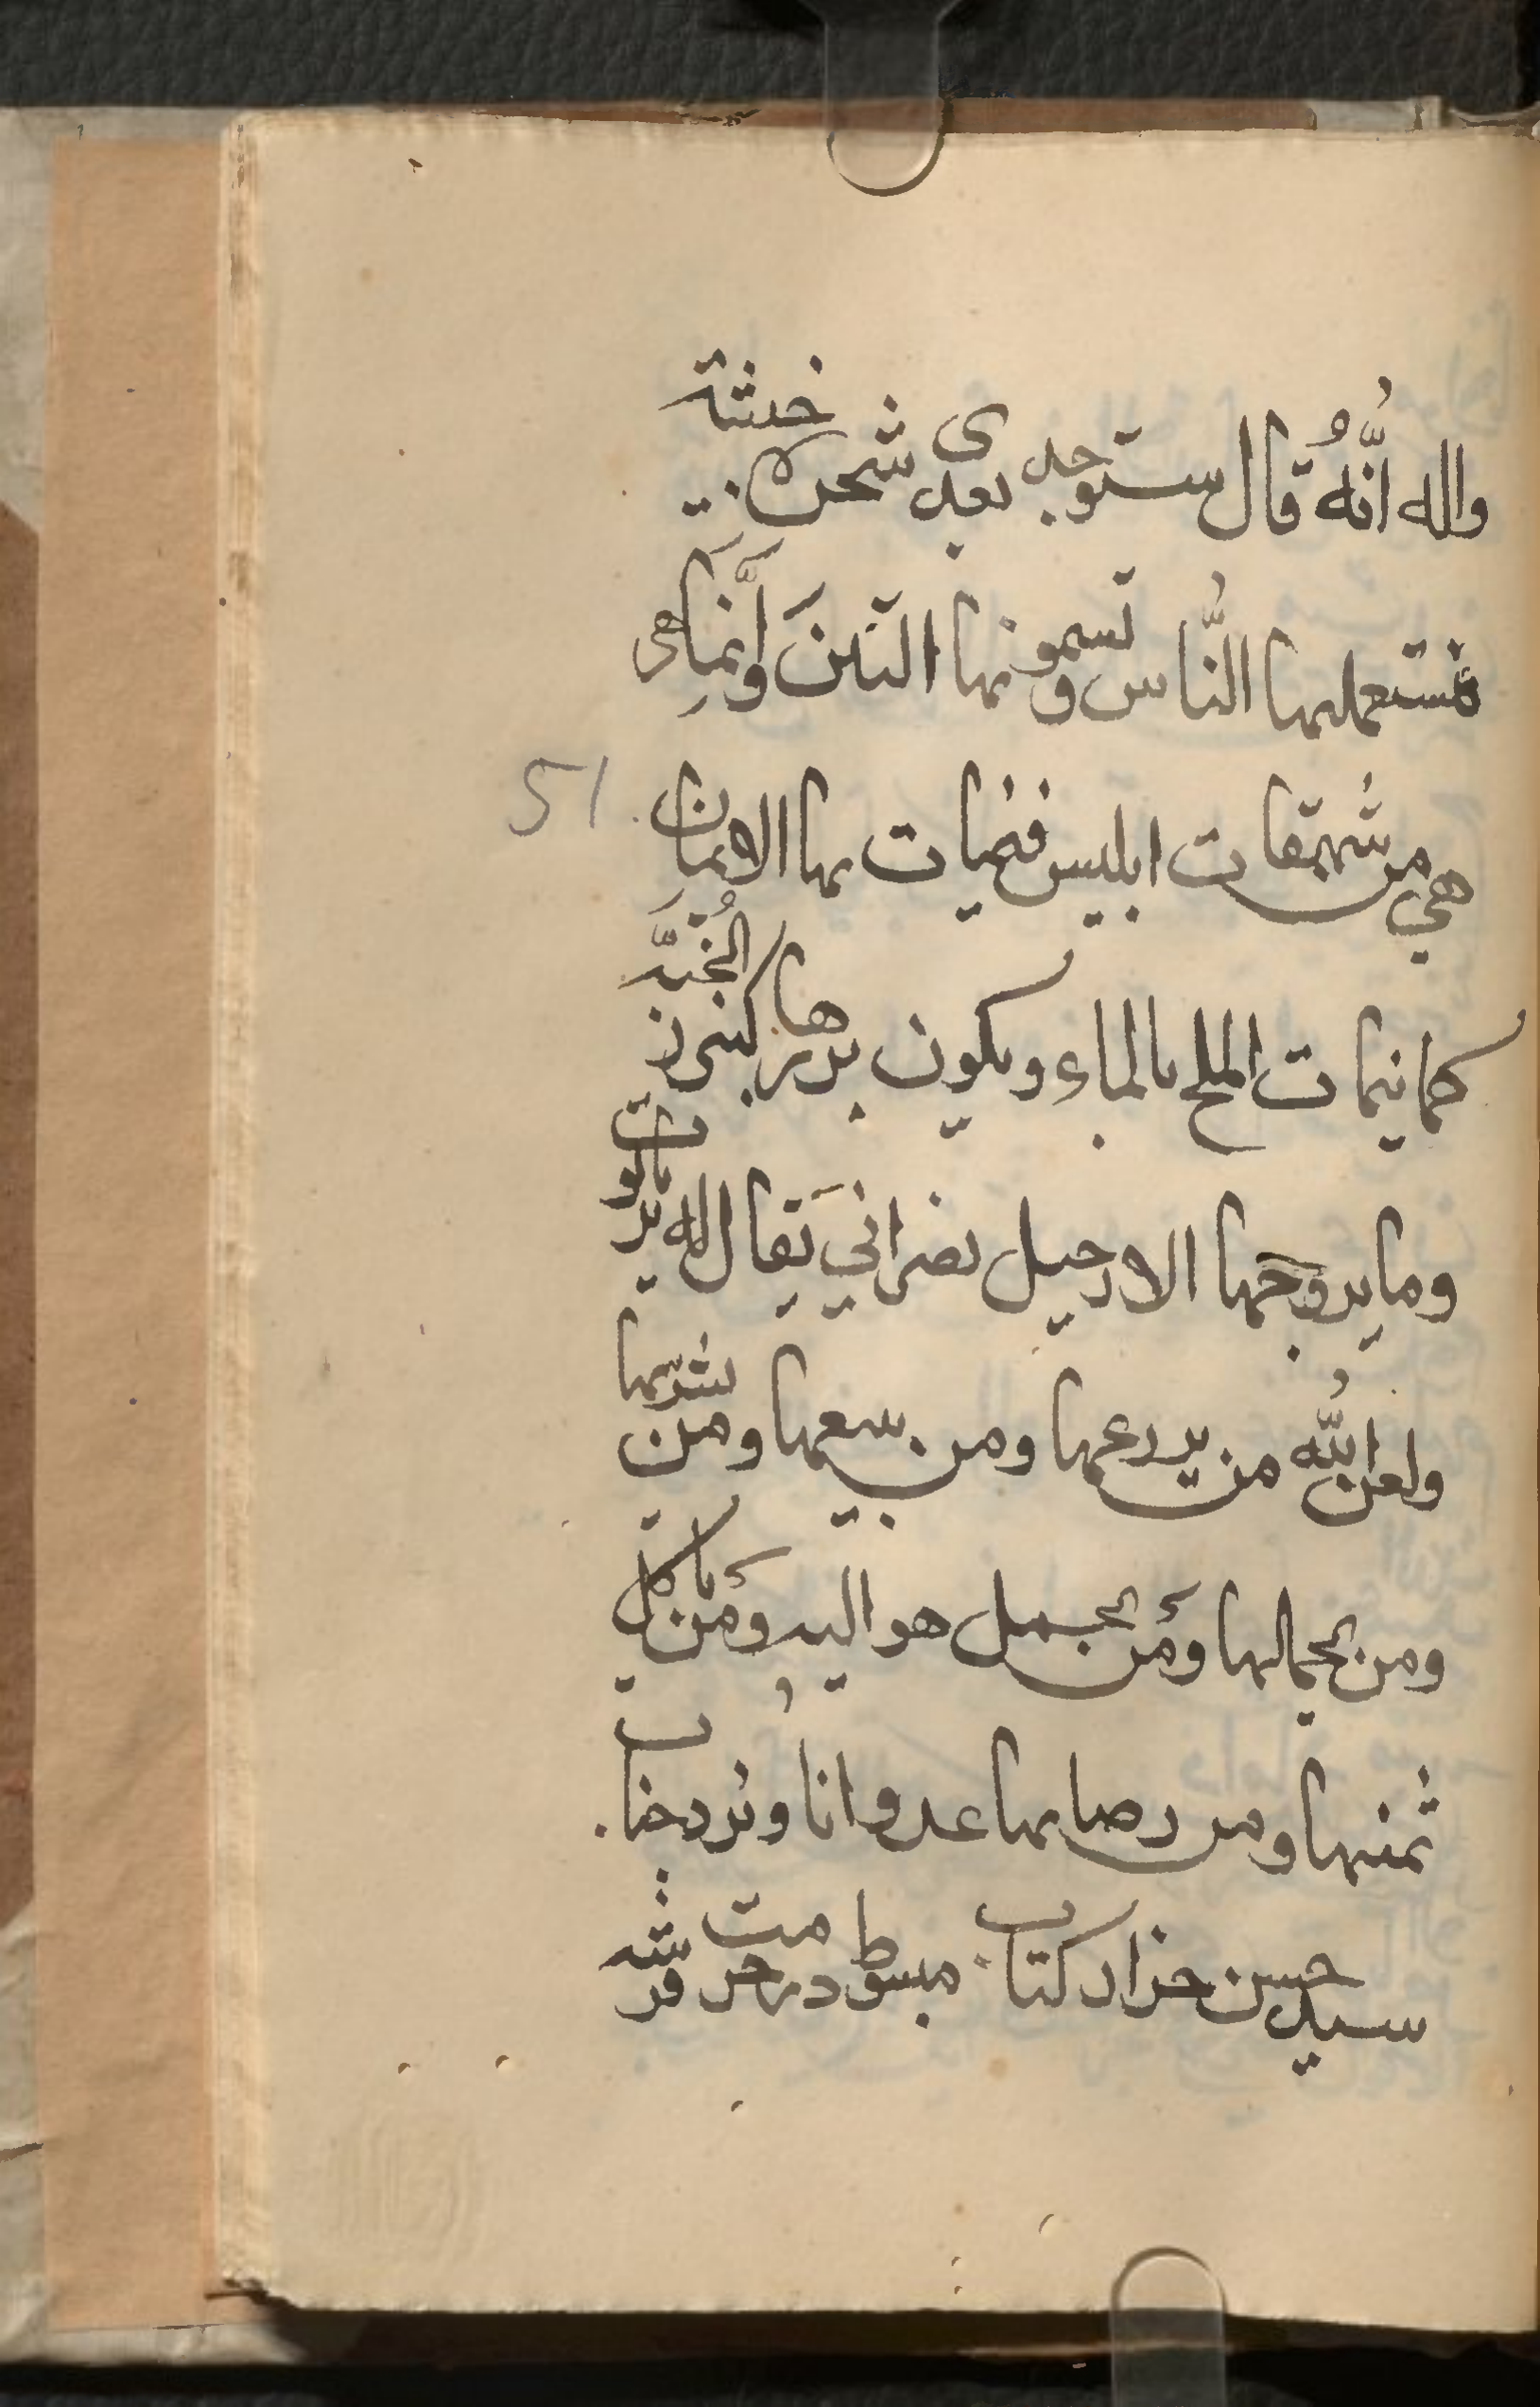 واله انّهُ قال ستوجد بعدى شجرة خبيثة
فتستعملها النّاس وتسمونها التتنَ وَأنّما هى
هي من شهقات ابليس فيمات بها الايمان
51
كما يمات الملح بالماء ويكون بزرها كبزر الخُبَّز
وما يروجها الا رجيل نصراني يَقال له
ولعن اللّٰه من يزرعها ومن يبيعها ومن يشربها
ومن يحمالها ومن يحمل هو اليه ومن ياكل
ثمنها ومن رضا بها عدوانا ونزد جناب
سيد حسن خزاد كتاب مبسوط در حرمت